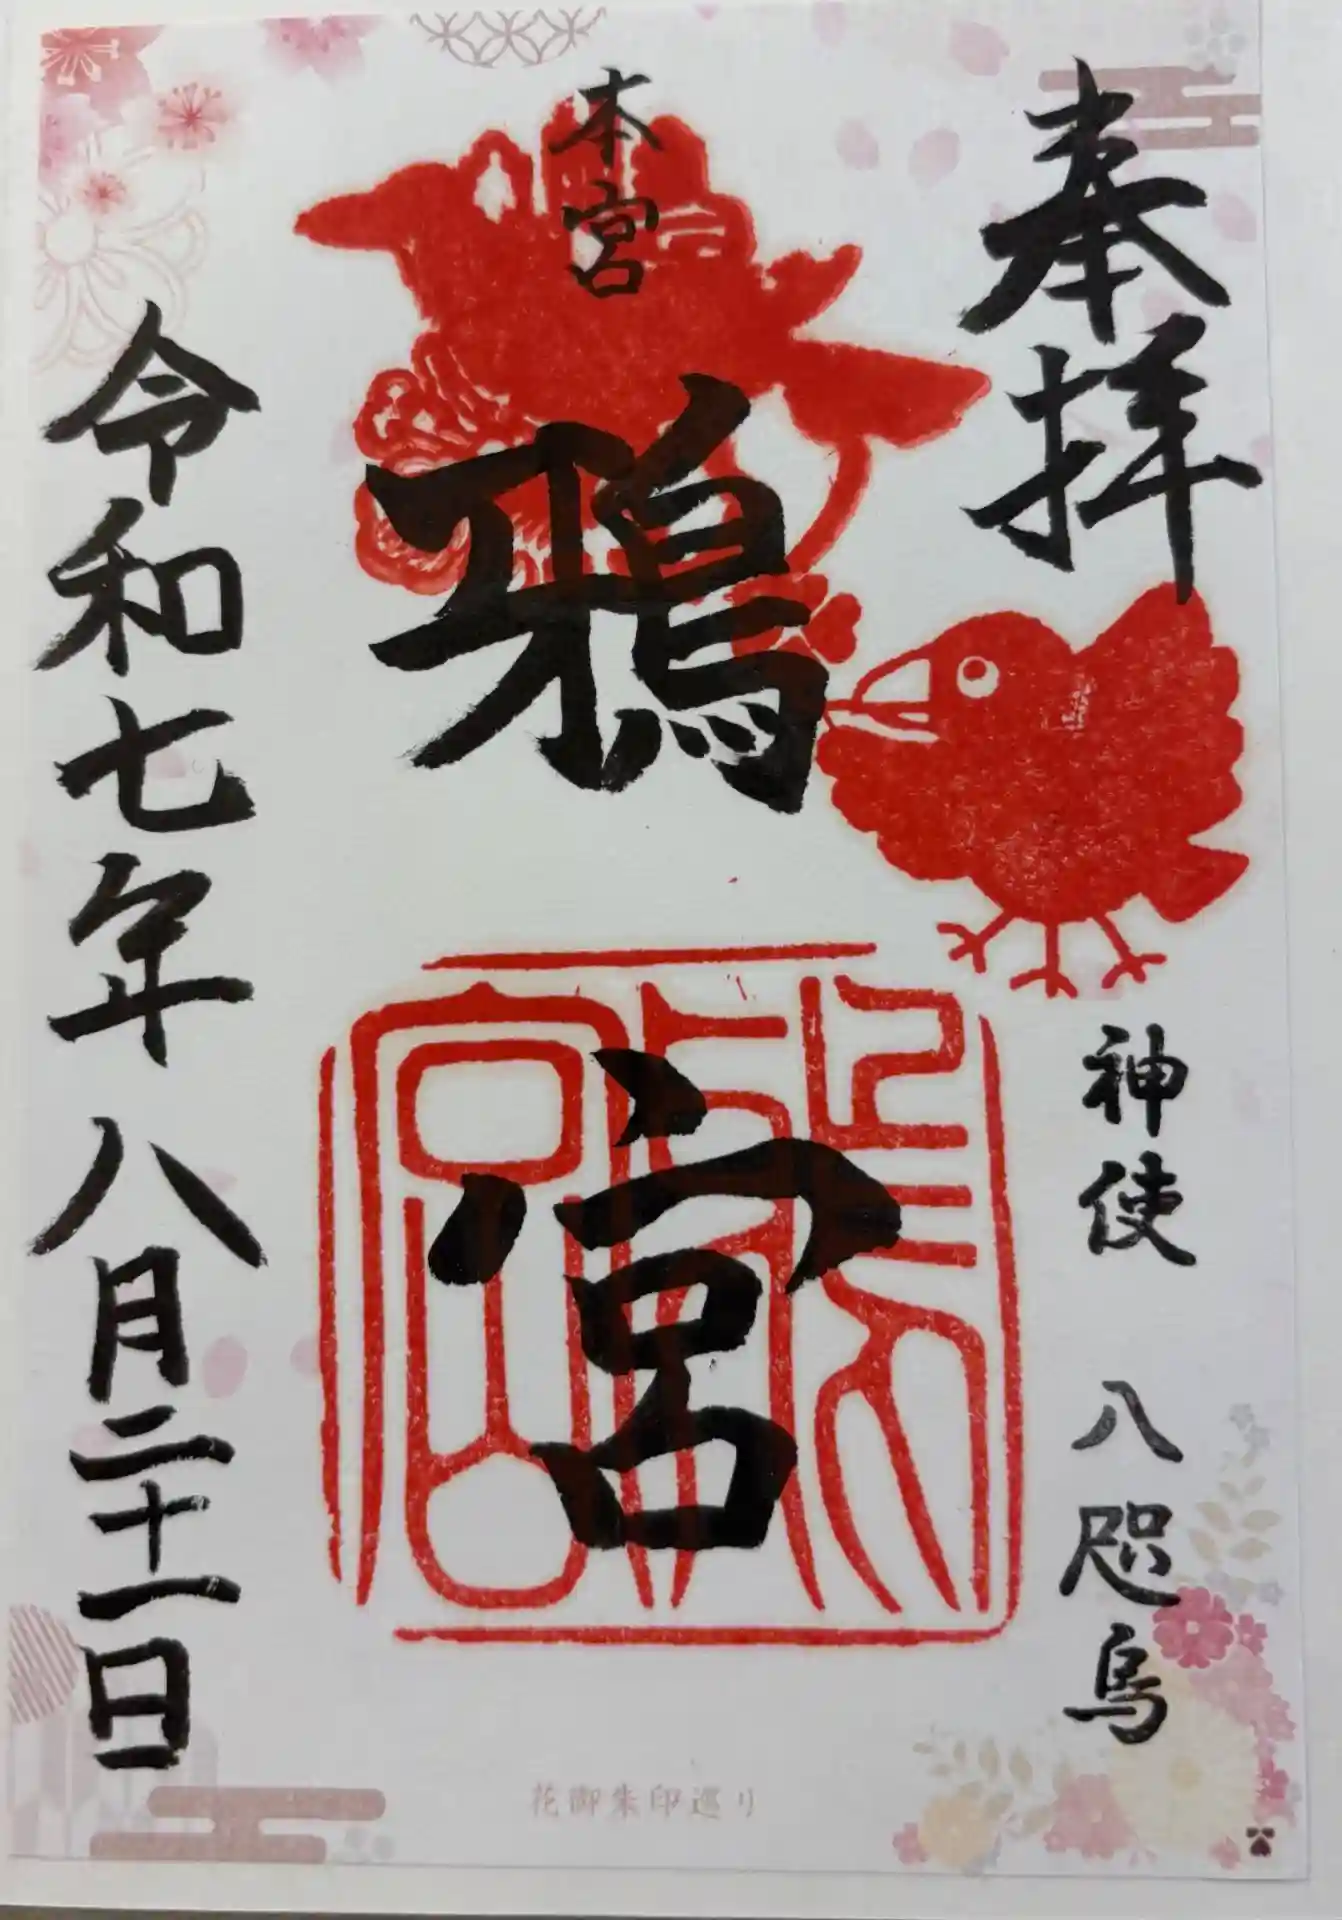 奉拝
神使 八咫烏
本宮
鴉宮
鴉宮
令和七年八月二十一日
花御朱印巡り